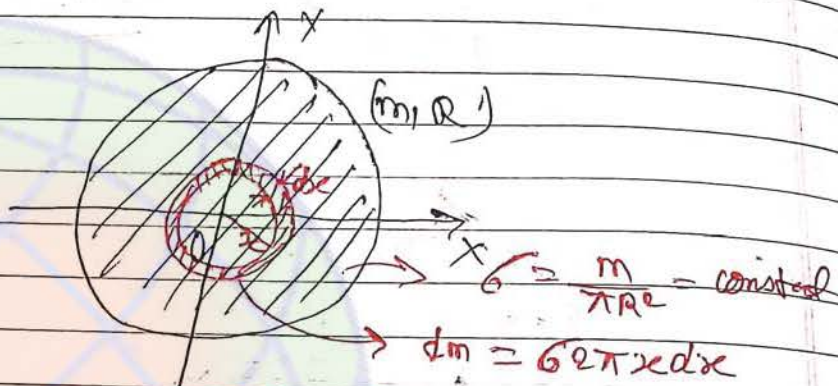 Y
(m, R)
dx
x
O
X
σ = m/πR² = constant
dm = σ2πxdx